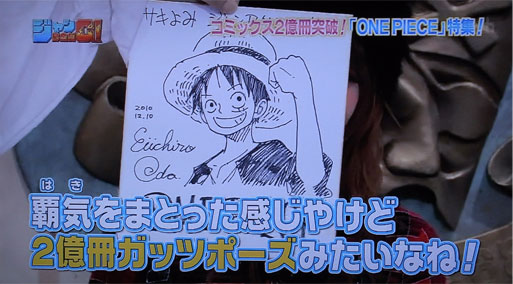 サキよみ
ジャンBANG!
コミックス2億冊突破!「ONE PIECE」特集!
2010
12,10
Eiichiro
Oda
はき
覇気をまとった感じやけど
2億冊ガッツポーズみたいなね!